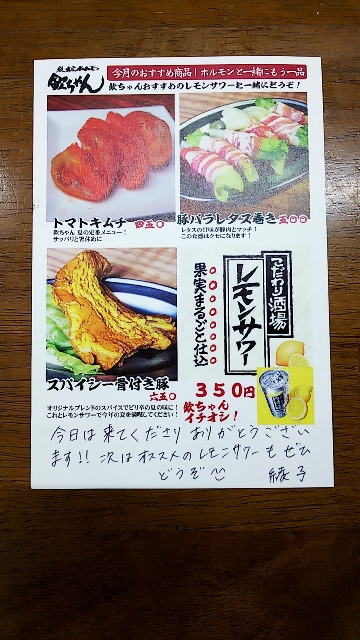 欽ちゃん
今月のおすすめ商品|ホルモンと一緒にもう一品
欽ちゃんおすすめのレモンサワーと一緒にどうぞ!
トマトキムチ 四五〇
欽ちゃん 夏の定番メニュー!
サッパリと箸休めに
豚バラレタス巻き 五〇〇
レタスの甘味が豚肉とマッチ!
この食感はクセになります!
スパイシー骨付き豚
六五〇
オリジナルブレンドのスパイスでピリ辛の夏の味に!
これとレモンサワーで今年の夏を満喫してください!
こだわり酒場
レモンサワー
果実まるごと仕込
350円
欽ちゃん
イチオシ!
今日は来てくださりありがとうござい
ます!! 次はオススメのレモンサワーもぜひ
どうぞ
綾子